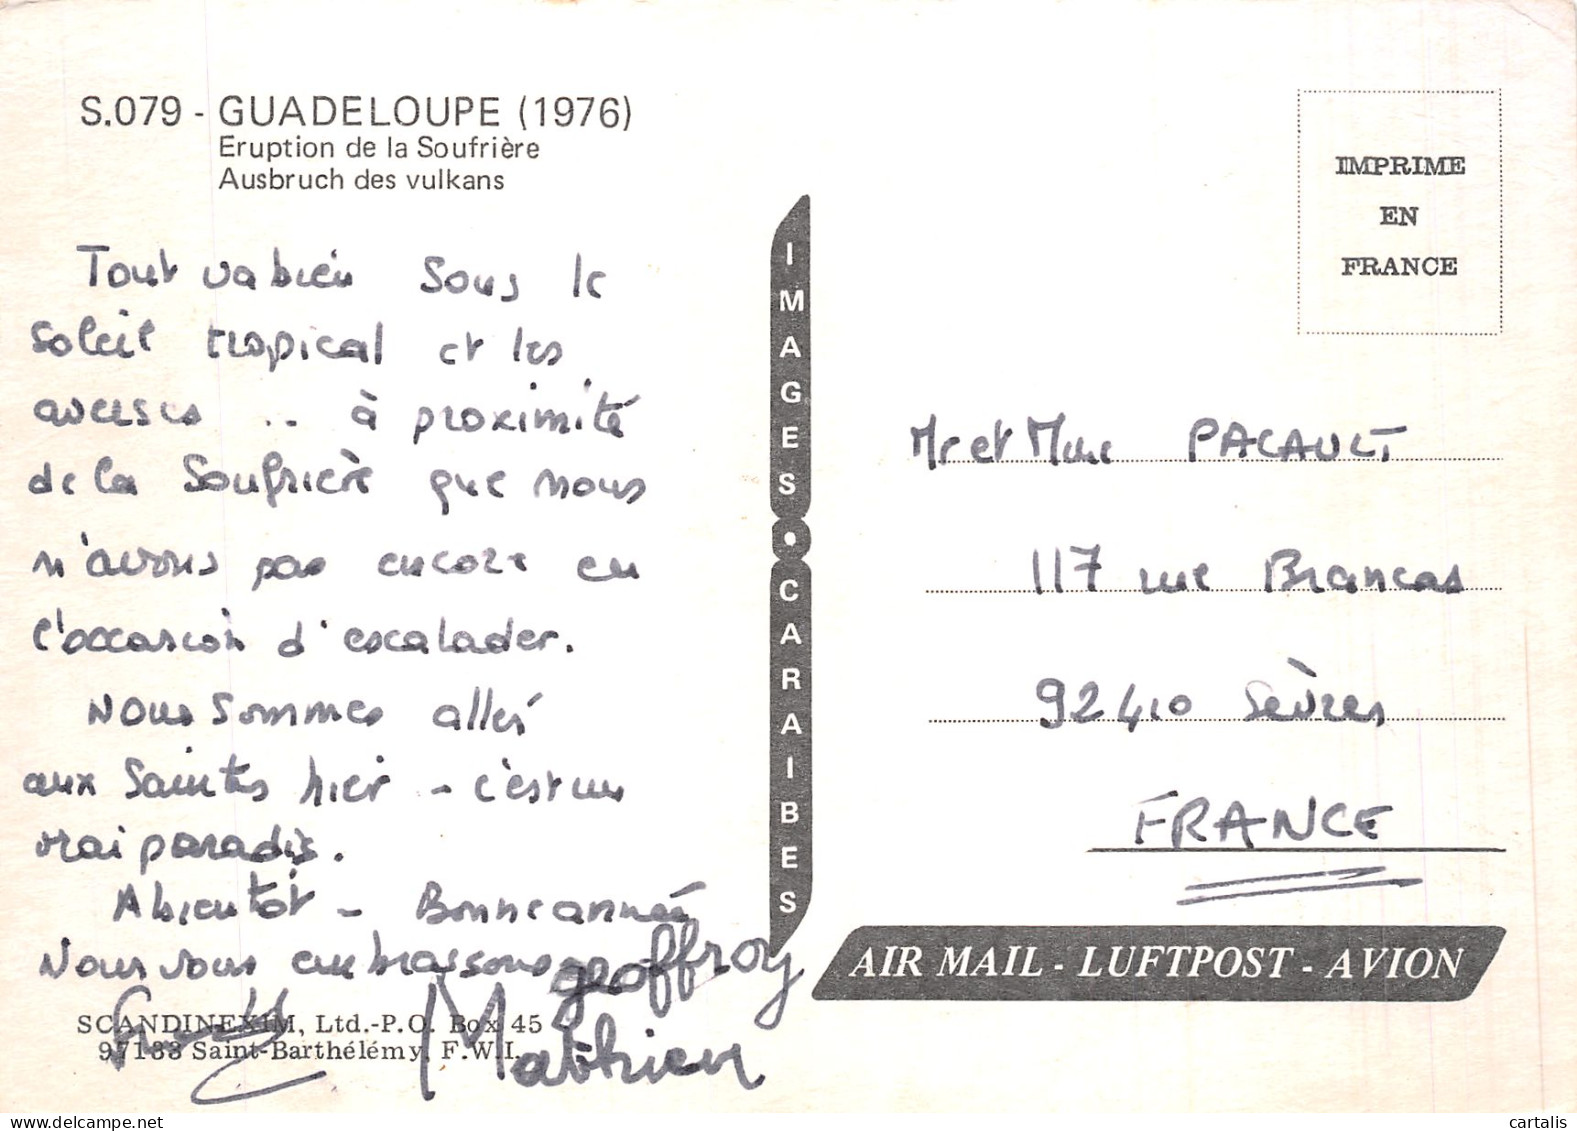 S.079 - GUADELOUPE (1976)
Eruption de la Soufrière
Ausbruch des vulkans
Tout va bien sous le
soleil tropical et les
averses .. à proximité
de la Soufrière que nous
n'avons pas encore eu
l'occasion d'escalader.
Nous sommes allés
aux Saintes hier - c'est un
vrai paradis.
A bientôt - Bonne année
Nous vous embrassons
geoffroy
Mathieu
SCANDINEXIM, Ltd.-P.O. Box 45 -
97133 Saint-Barthélémy, F.W.I.
IMAGES • CARAIBES
IMPRIME
EN
FRANCE
Mr et Mme PACAULT
117 rue Brancas
92410 Sèvres
FRANCE
AIR MAIL - LUFTPOST - AVION
cartalis